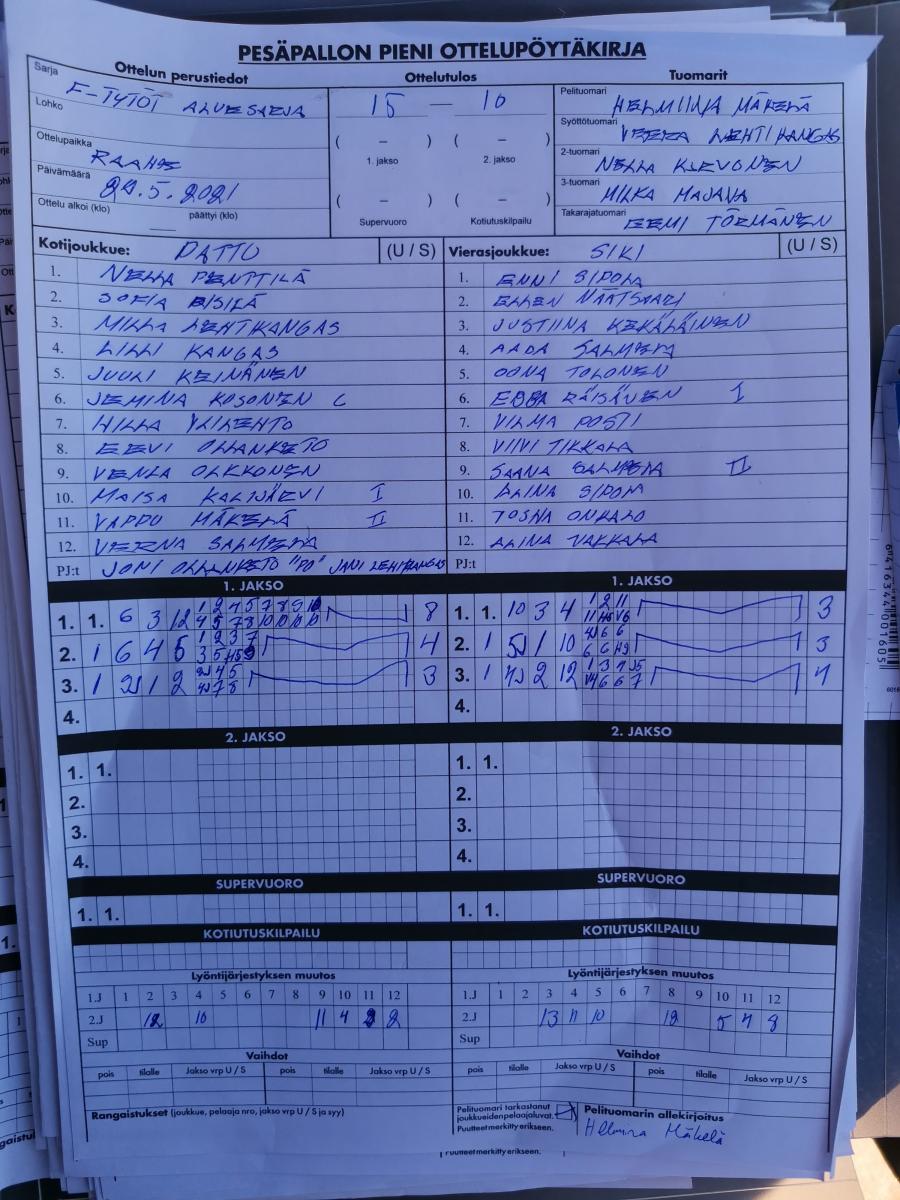 PESÄPALLON PIENI OTTELUPÖYTÄKIRJA
Ottelun perustiedot
Ottelutulos
Tuomarit
Sarja F-TYTÖT ALUESARJA
Lohko
Ottelupaikka RAAHE
Päivämäärä 29.5.2021
Ottelu alkoi (klo) päättyi (klo)
15 — 10
( – ) ( – )
1. jakso 2. jakso
( – ) ( – )
Supervuoro Kotiutuskilpailu
Pelituomari HELMIINA MÄKELÄ
Syöttötuomari VEERA LEHTIKANGAS
2-tuomari NELLA
3-tuomari MILKA MAJAVA
Takarajatuomari EEMI TÖRMÄNEN
Kotijoukkue: PATTO (U / S)
1. NELLA PENTTILÄ
2. SOFIA
3. MILLA LEHTIKANGAS
4. LILLI KANGAS
5. JUULI KEINÄNEN
6. JEMINA KOSONEN C
7. HILLA YLILEHTO
8. EEVI OLLANKETO
9. VENLA OLKKONEN
10. MAISA KALIJÄRVI I
11. VAPPU MÄKELÄ II
12. VERNA SALMELA
PJ:t JONI OLLANKETO "PO" JANI LEHTIKANGAS
Vierasjoukkue: SIKI (U / S)
1. ENNI SIPOLA
2. ELLEN NÄÄTSAARI
3. JUSTIINA KEKÄLÄINEN
4. AADA SALMELA
5. OONA TOLONEN
6. EBBA RÄISÄNEN I
7. VILMA POSTI
8. VIIVI TIKKALA
9. SAANA SALMELA II
10. ALINA SIPOLA
11. TOSHA ONKALO
12. ALINA VAKKALA
PJ:t
1. JAKSO
1. 1. 6 3 12 8
2. 1 6 4 5 4
3. 1 2 3
4.
1. JAKSO
1. 1. 10 3 4 3
2. 1 5 1 10 3
3. 1 2 12 4
4.
2. JAKSO
1. 1.
2.
3.
4.
2. JAKSO
1. 1.
2.
3.
4.
SUPERVUORO
1. 1.
SUPERVUORO
1. 1.
KOTIUTUSKILPAILU
KOTIUTUSKILPAILU
Lyöntijärjestyksen muutos
1.J 1 2 3 4 5 6 7 8 9 10 11 12
2.J 12 10 11 4 2
Sup
Lyöntijärjestyksen muutos
1.J 1 2 3 4 5 6 7 8 9 10 11 12
2.J 13 11 10 12 5 4 8
Sup
Vaihdot
pois tilalle Jakso vrp U / S pois tilalle Jakso vrp U / S
Vaihdot
pois tilalle Jakso vrp U / S pois tilalle Jakso vrp U / S
Rangaistukset (joukkue, pelaaja nro, jakso vrp U / S ja syy)
Pelituomari tarkastanut
joukkueiden pelaajaluvat.
Puutteet merkitty erikseen.
Pelituomarin allekirjoitus
Helmiina Mäkelä
Puutteet merkitty erikseen.